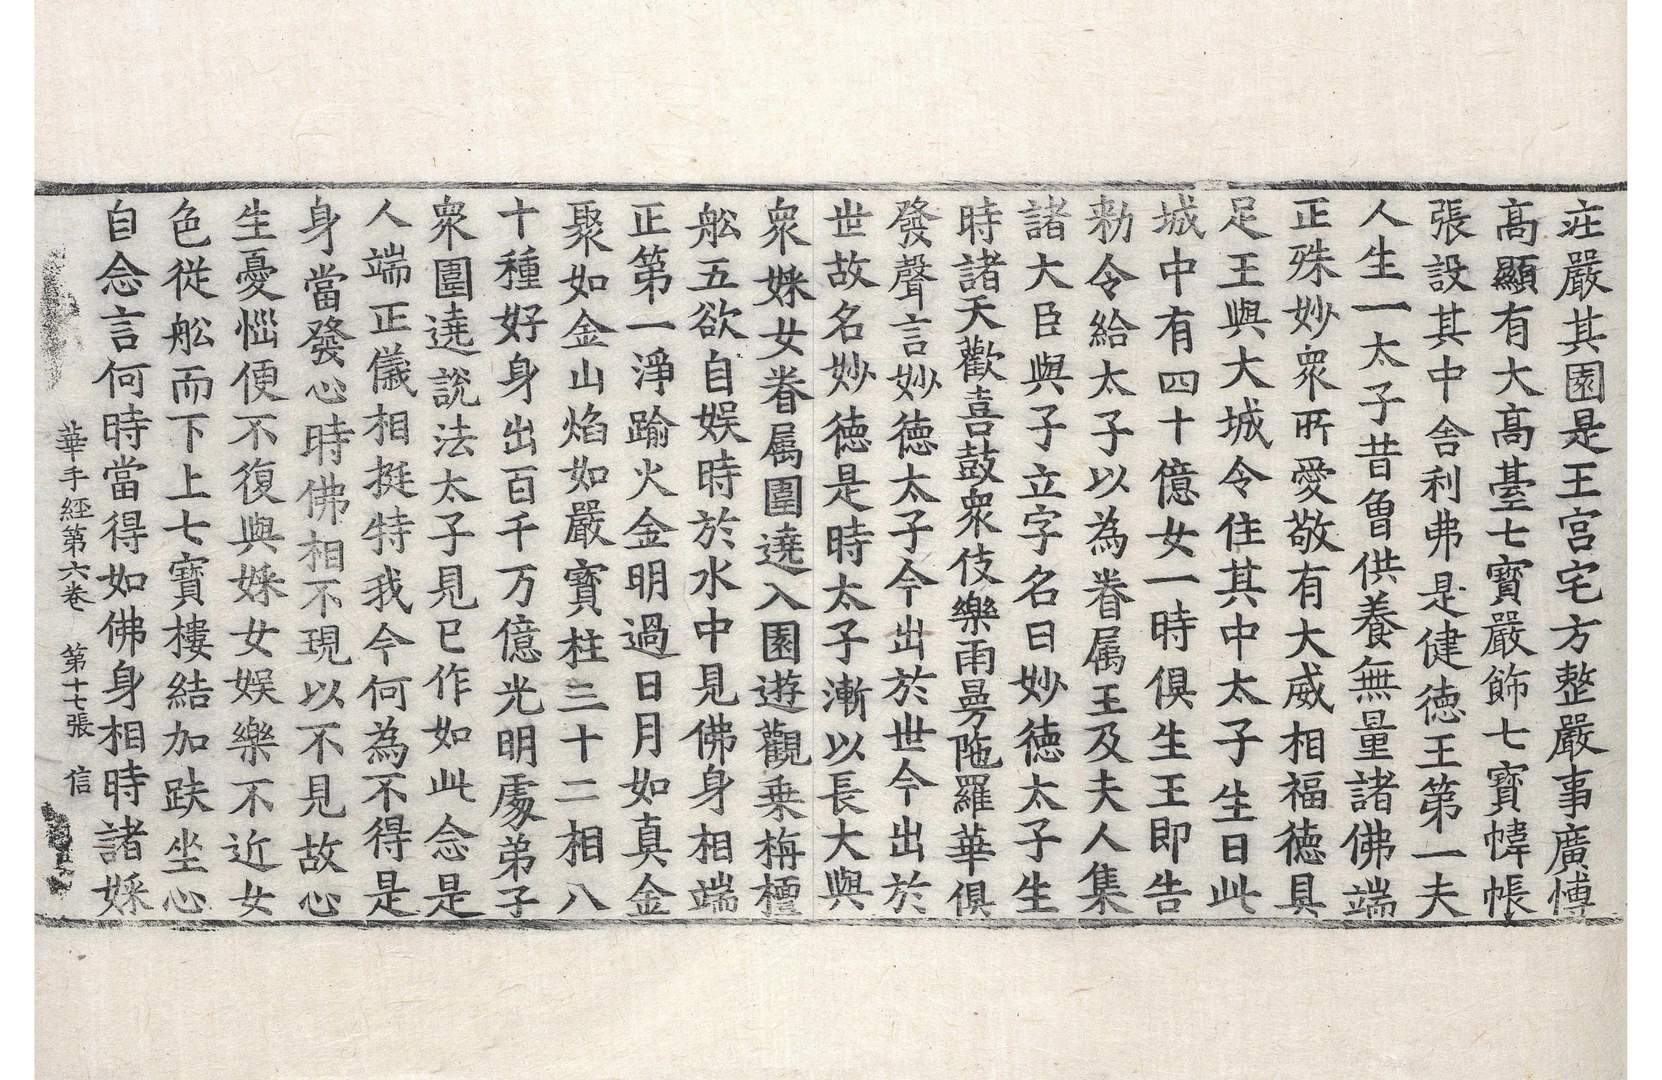 莊嚴其園是王宮宅方整嚴事廣愽
高顯有大高臺七寶嚴飾七寶幃帳
張設其中舍利弗是健德王第一夫
人生一太子昔曾供養無量諸佛端
正殊妙衆所愛敬有大威相福德具
足王與大城令住其中太子生日此
城中有四十億女一時俱生王即告
勑令給太子以為眷属王及夫人集
諸大臣與子立字名曰妙德太子生
時諸天歡喜鼓衆伎樂雨曼陁羅華俱
發聲言妙德太子今出於世今出於
世故名妙德是時太子漸以長大與
衆婇女眷属圍遶入園遊觀乗栴檀
舩五欲自娛時於水中見佛身相端
正第一淨踰火金明過日月如真金
聚如金山焰如嚴寶柱三十二相八
十種好身出百千万億光明處弟子
衆圍遶說法太子見已作如此念是
人端正儀相挺特我今何為不得是
身當發心時佛相不現以不見故心
生憂惱便不復與婇女娛樂不近女
色從舩而下上七寶樓結加趺坐心
自念言何時當得如佛身相時諸婇
華手經第六卷 第十七張 信